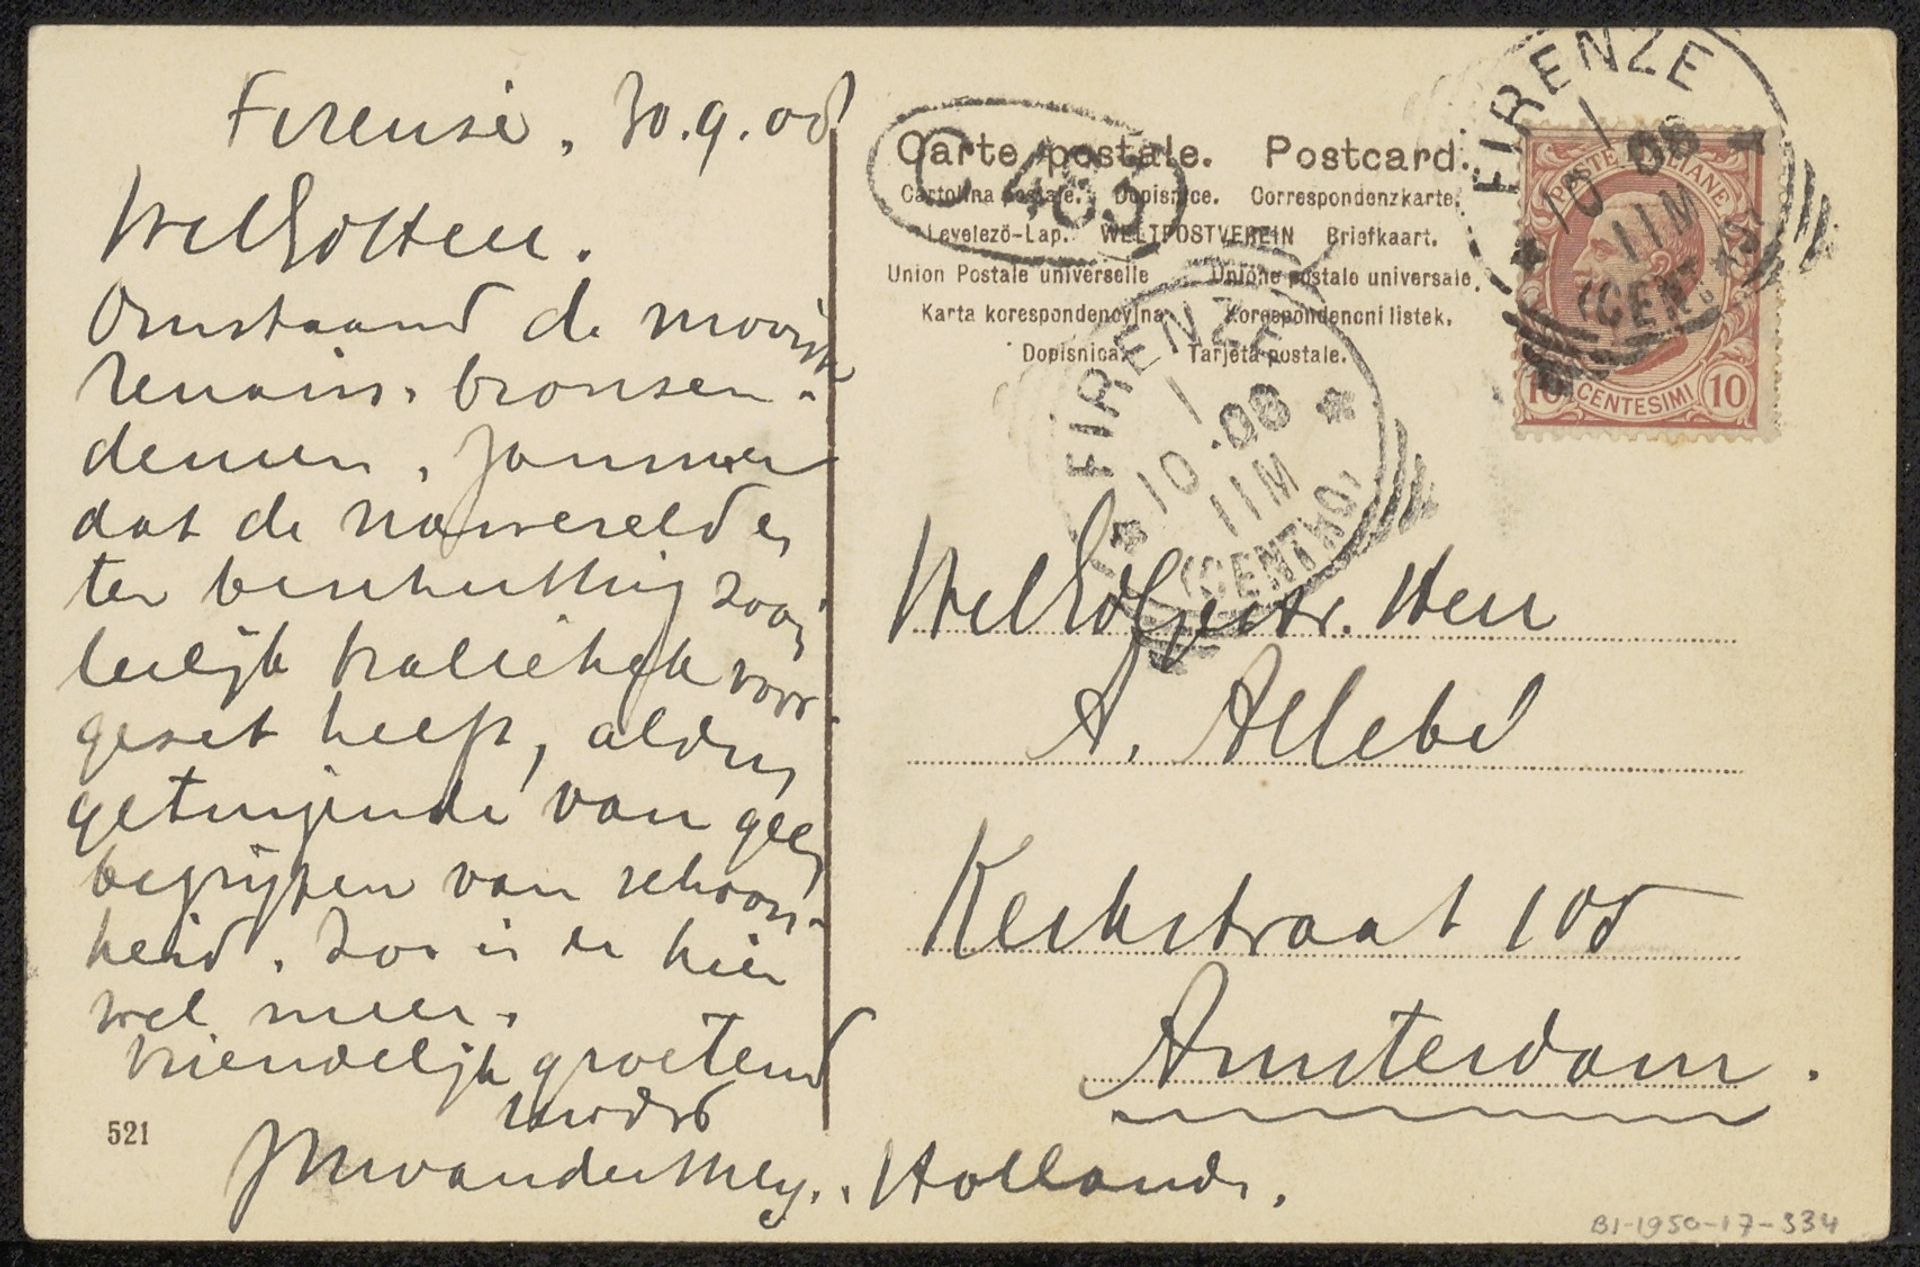 Firense, 30.9.08
WelEdHeer.
Omstaand de mooiste
renaiss. bronsen.
deuren, Jammer
dat de naweereld er
ter beschutting zoo'n
leelijk traliehek voor
geset heeft, aldus
getuigende van geen
begrijpen van schoon-
heid. Zoo is er hier
wel meer.
vriendelijk groetend
JMvanderMey.
521
Carte postale. Postcard.
Cartolina postale. Dopisnice. Correspondenzkarte.
Levelezö-Lap. WELTPOSTVEREIN Briefkaart.
Union Postale universelle Unione postale universale.
Karta korespondencyjna Korespondencni listek.
Dopisnica. Tarjeta postale.
C 485
FIRENZE
1 10 .08
11M
(CENTRO)
FIRENZE
1 10 08
11M
(CENTRO)
POSTE ITALIANE
10 CENTESIMI 10
WelEdGestr. Heer
A. Allebé
Kerkstraat 108
Amsterdam.
Hollande.
BI-1950-17-334